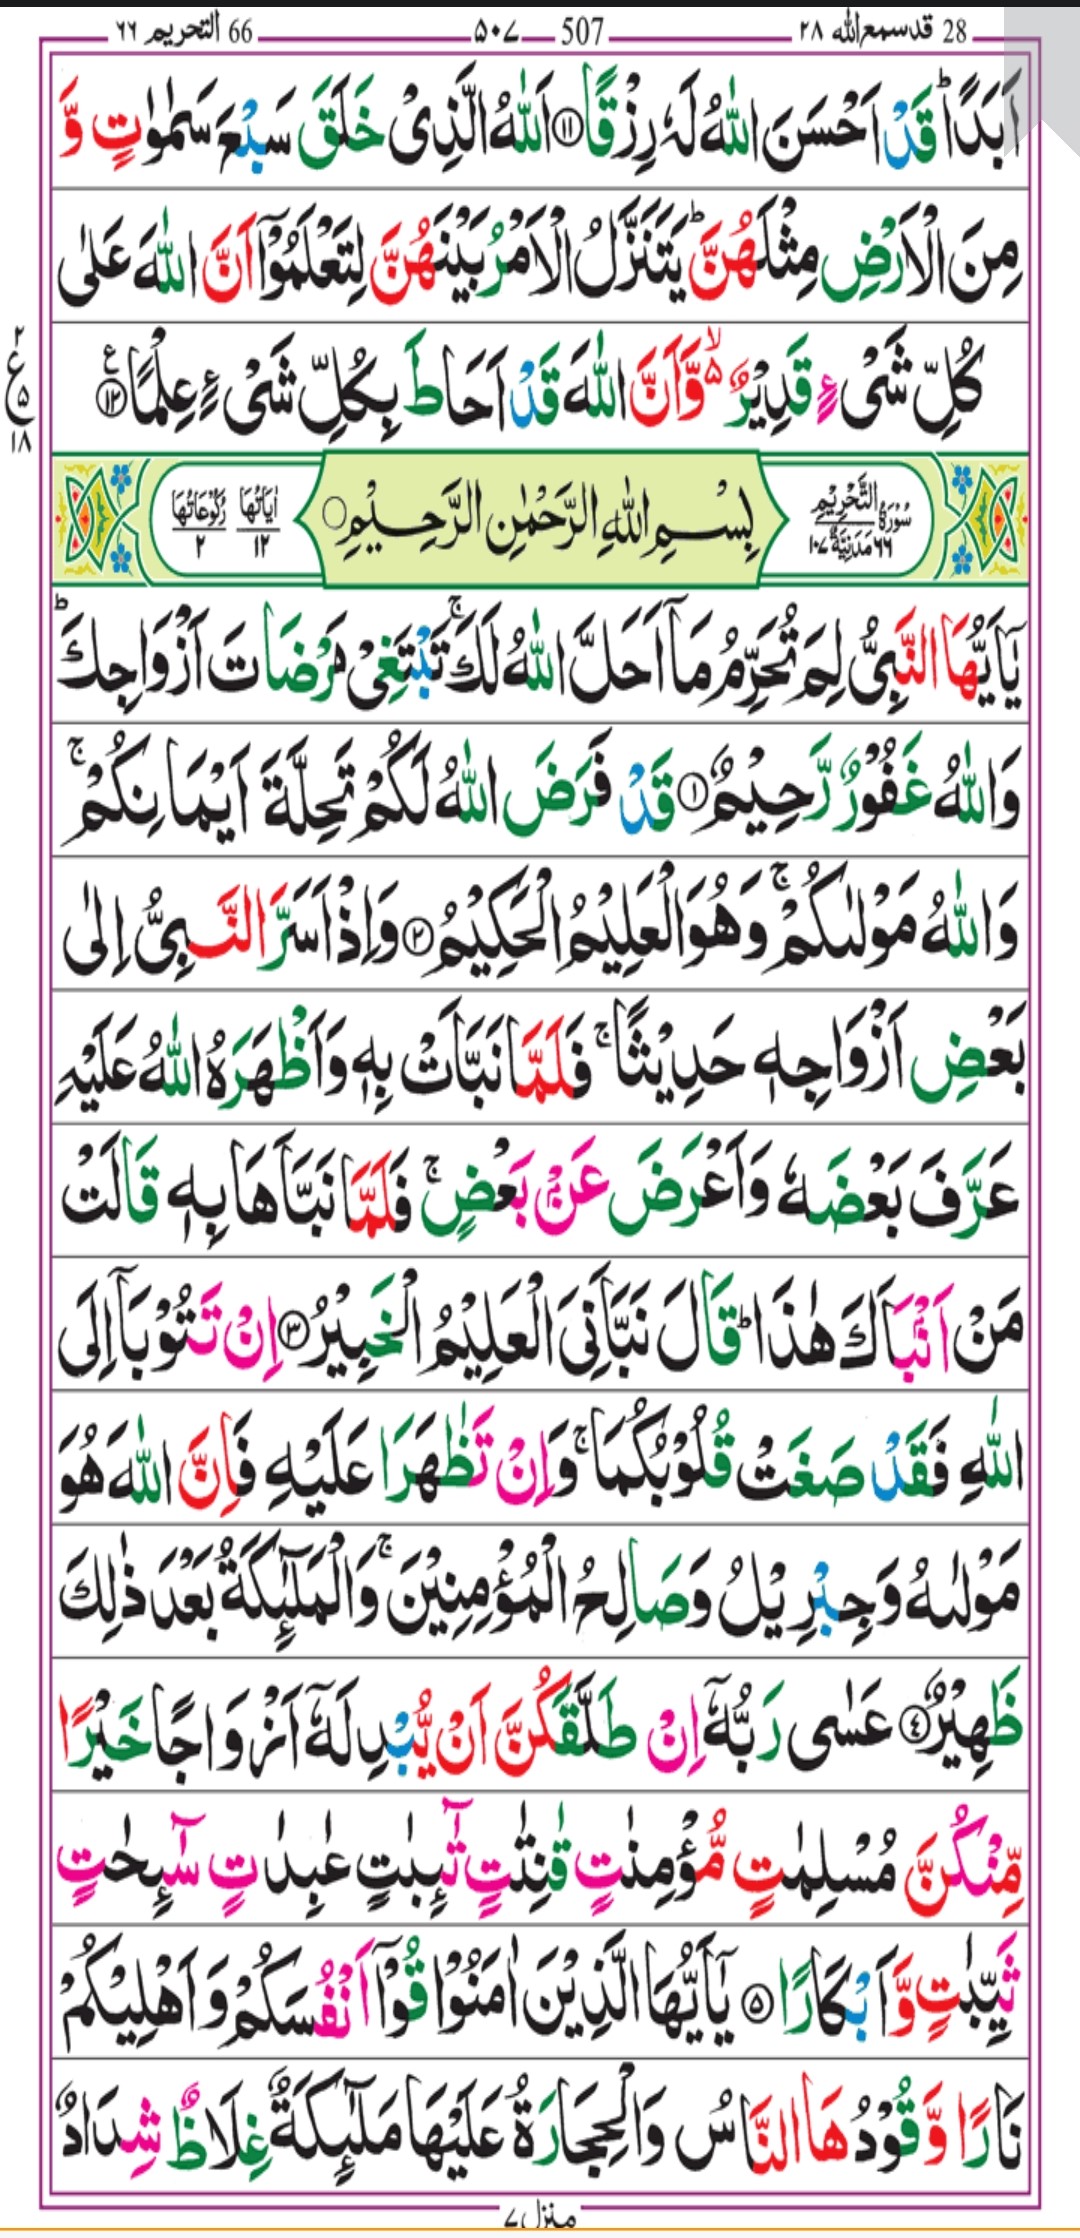 28 قدسمع الله ٢٨ 507 ۵۰۷ 66 التحريم ٦٦
اَبَدًا ؕ قَدْ اَحْسَنَ اللّٰهُ لَهٗ رِزْقًا ﴿۱۱﴾ اَللّٰهُ الَّذِیْ خَلَقَ سَبْعَ سَمٰوٰتٍ وَّ
مِنَ الْاَرْضِ مِثْلَهُنَّ ؕ یَتَنَزَّلُ الْاَمْرُ بَیْنَهُنَّ لِتَعْلَمُوْۤا اَنَّ اللّٰهَ عَلٰی
كُلِّ شَیْءٍ قَدِیْرٌ ۙ۬ وَّاَنَّ اللّٰهَ قَدْ اَحَاطَ بِكُلِّ شَیْءٍ عِلْمًا ﴿۱۲﴾
٢ ع ۵ ١٨
سُوْرَةُ التَّحْرِیْمِ ٦٦ مَدَنِیَّةٌ ١٠٧ بِسْمِ اللّٰهِ الرَّحْمٰنِ الرَّحِیْمِ اٰیَاتُهَا ١٢ رُكُوْعَاتُهَا ٢
یٰۤاَیُّهَا النَّبِیُّ لِمَ تُحَرِّمُ مَاۤ اَحَلَّ اللّٰهُ لَكَ ۚ تَبْتَغِیْ مَرْضَاتَ اَزْوَاجِكَ ؕ
وَاللّٰهُ غَفُوْرٌ رَّحِیْمٌ ﴿۱﴾ قَدْ فَرَضَ اللّٰهُ لَكُمْ تَحِلَّةَ اَیْمَانِكُمْ ۚ
وَاللّٰهُ مَوْلٰىكُمْ ۚ وَهُوَ الْعَلِیْمُ الْحَكِیْمُ ﴿۲﴾ وَاِذْ اَسَرَّ النَّبِیُّ اِلٰی
بَعْضِ اَزْوَاجِهٖ حَدِیْثًا ۚ فَلَمَّا نَبَّاَتْ بِهٖ وَاَظْهَرَهُ اللّٰهُ عَلَیْهِ
عَرَّفَ بَعْضَهٗ وَاَعْرَضَ عَنْۢ بَعْضٍ ۚ فَلَمَّا نَبَّاَهَا بِهٖ قَالَتْ
مَنْ اَنْۢبَاَكَ هٰذَا ؕ قَالَ نَبَّاَنِیَ الْعَلِیْمُ الْخَبِیْرُ ﴿۳﴾ اِنْ تَتُوْبَاۤ اِلَی
اللّٰهِ فَقَدْ صَغَتْ قُلُوْبُكُمَا ۚ وَاِنْ تَظٰهَرَا عَلَیْهِ فَاِنَّ اللّٰهَ هُوَ
مَوْلٰىهُ وَجِبْرِیْلُ وَصَالِحُ الْمُؤْمِنِیْنَ ۚ وَالْمَلٰٓئِكَةُ بَعْدَ ذٰلِكَ
ظَهِیْرٌ ﴿۴﴾ عَسٰی رَبُّهٗۤ اِنْ طَلَّقَكُنَّ اَنْ یُّبْدِلَهٗۤ اَزْوَاجًا خَیْرًا
مِّنْكُنَّ مُسْلِمٰتٍ مُّؤْمِنٰتٍ قٰنِتٰتٍ تٰٓئِبٰتٍ عٰبِدٰتٍ سٰٓئِحٰتٍ
ثَیِّبٰتٍ وَّاَبْكَارًا ﴿۵﴾ یٰۤاَیُّهَا الَّذِیْنَ اٰمَنُوْا قُوْۤا اَنْفُسَكُمْ وَاَهْلِیْكُمْ
نَارًا وَّقُوْدُهَا النَّاسُ وَالْحِجَارَةُ عَلَیْهَا مَلٰٓئِكَةٌ غِلَاظٌ شِدَادٌ
منزل ۷